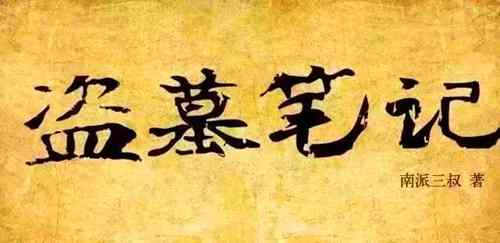 盗墓笔记
南派三叔 著